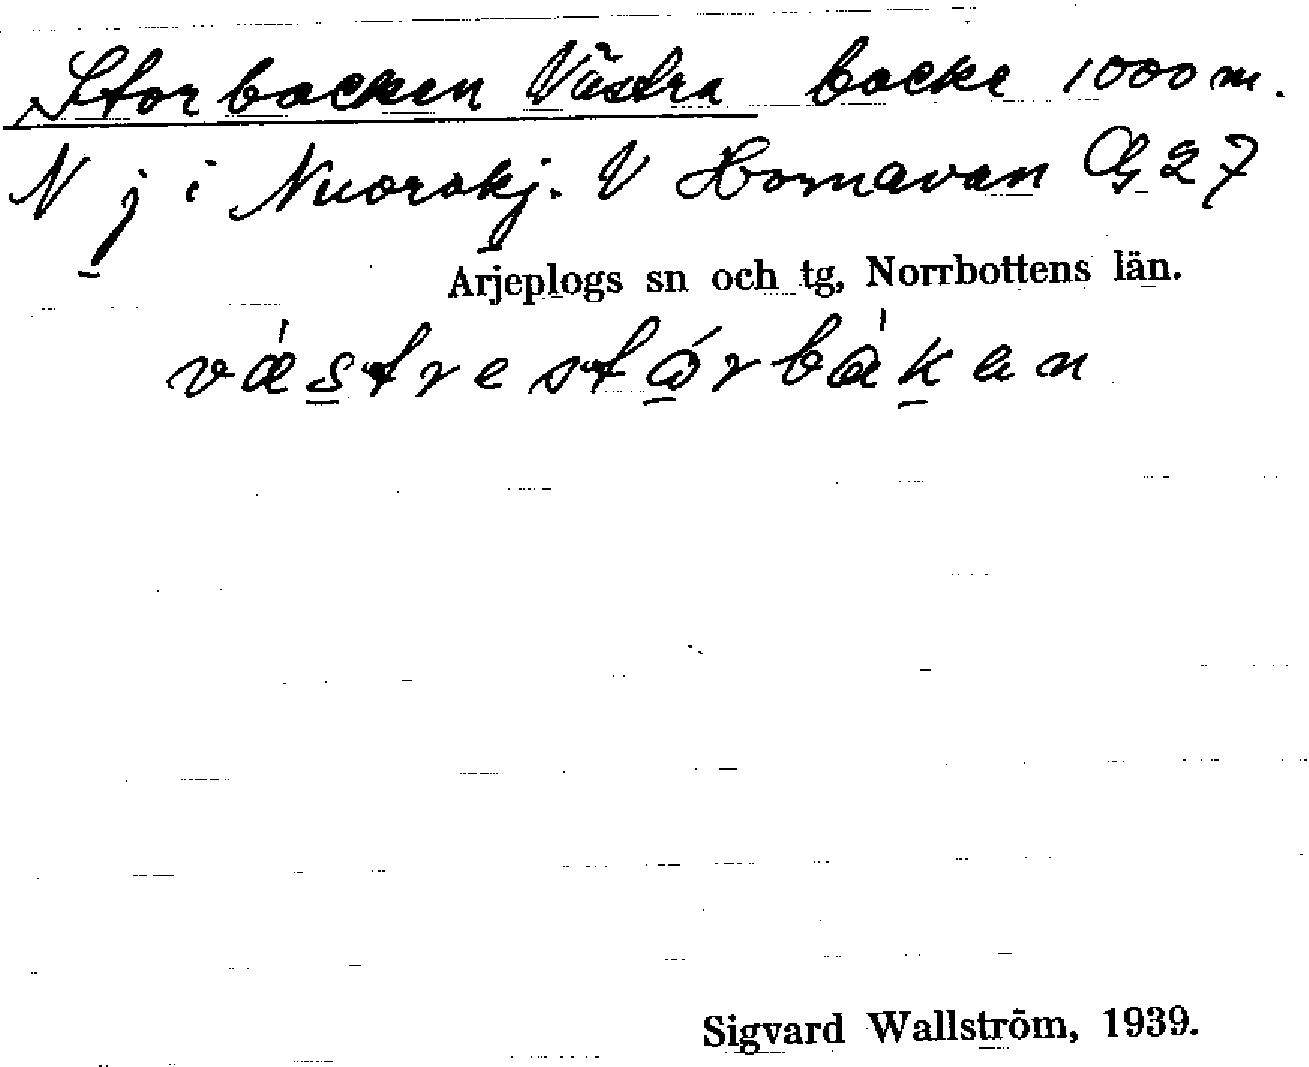 Storbacken Västra backe 1000 m.
N j i Nuorokj. V Hornavan G 27
Arjeplogs sn och tg, Norrbottens län.
västrestórbàkan
Sigvard Wallström, 1939.